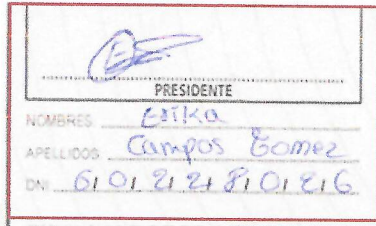 PRESIDENTE
NOMBRES Erika
APELLIDOS Campos Gomez
DNI 60228026